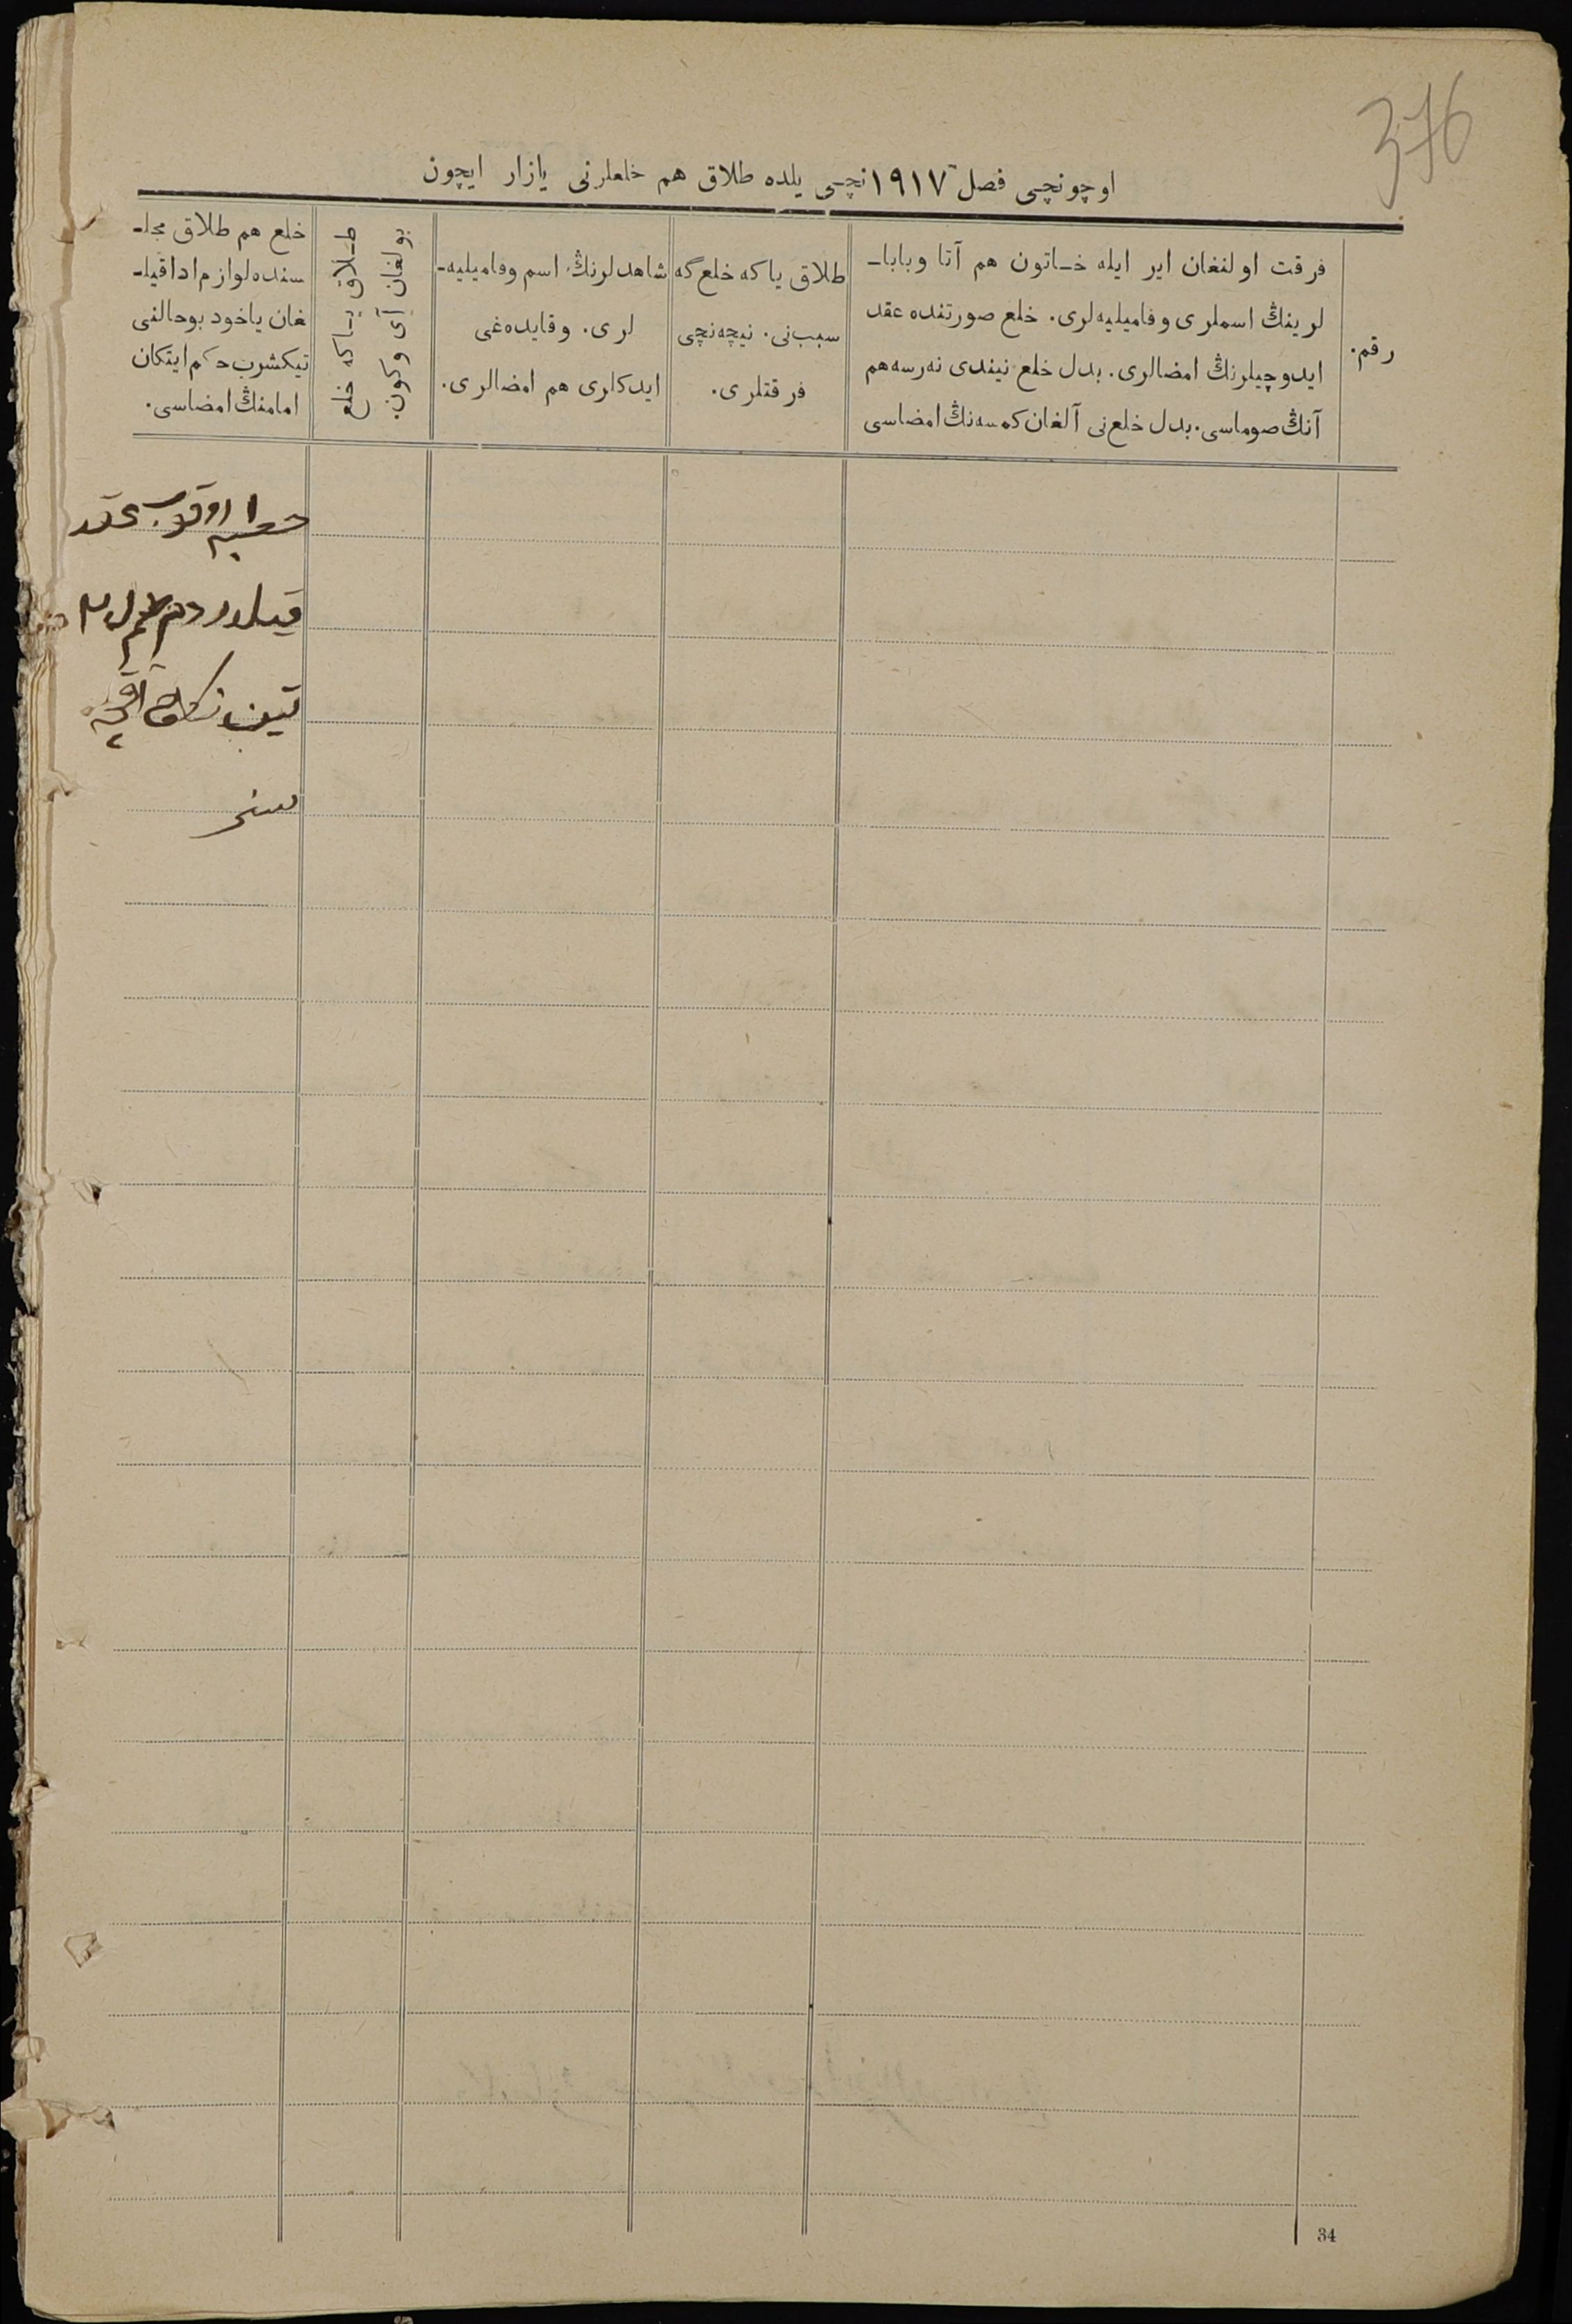 376
اوچونچی فصل ١٩١٧ نچی یلده طلاق هم خلعلرنی یازار ایچون
رقم.
فرقت اولنغان ایر ایله خاتون هم آتا و بابا-
لرینڭ اسملری و فامیلیه‌لری. خلع صورتنده عقد
ایدوچیلرنڭ امضالری. بدل خلع نیندی نەرسه هم
آنڭ صوماسی. بدل خلع‌نی آلغان کمسه‌نڭ امضاسی
طلاق یا که خلع گه
سبب‌نی. نیچه‌نچی
فرقتلری.
شاهدلرنڭ اسم و فامیلیه-
لری. و قایده‌غی
ایدکلری هم امضالری.
طلاق یا که خلع
بولغان آی و کون.
خلع هم طلاق مجل-
سنده لوازم ادا قیل-
غان یاخود بو حالنی
تیکشرب حکم ایتکان
امامنڭ امضاسی.
خطبه اوقوب عقد
قیلدردم
نکاح
34